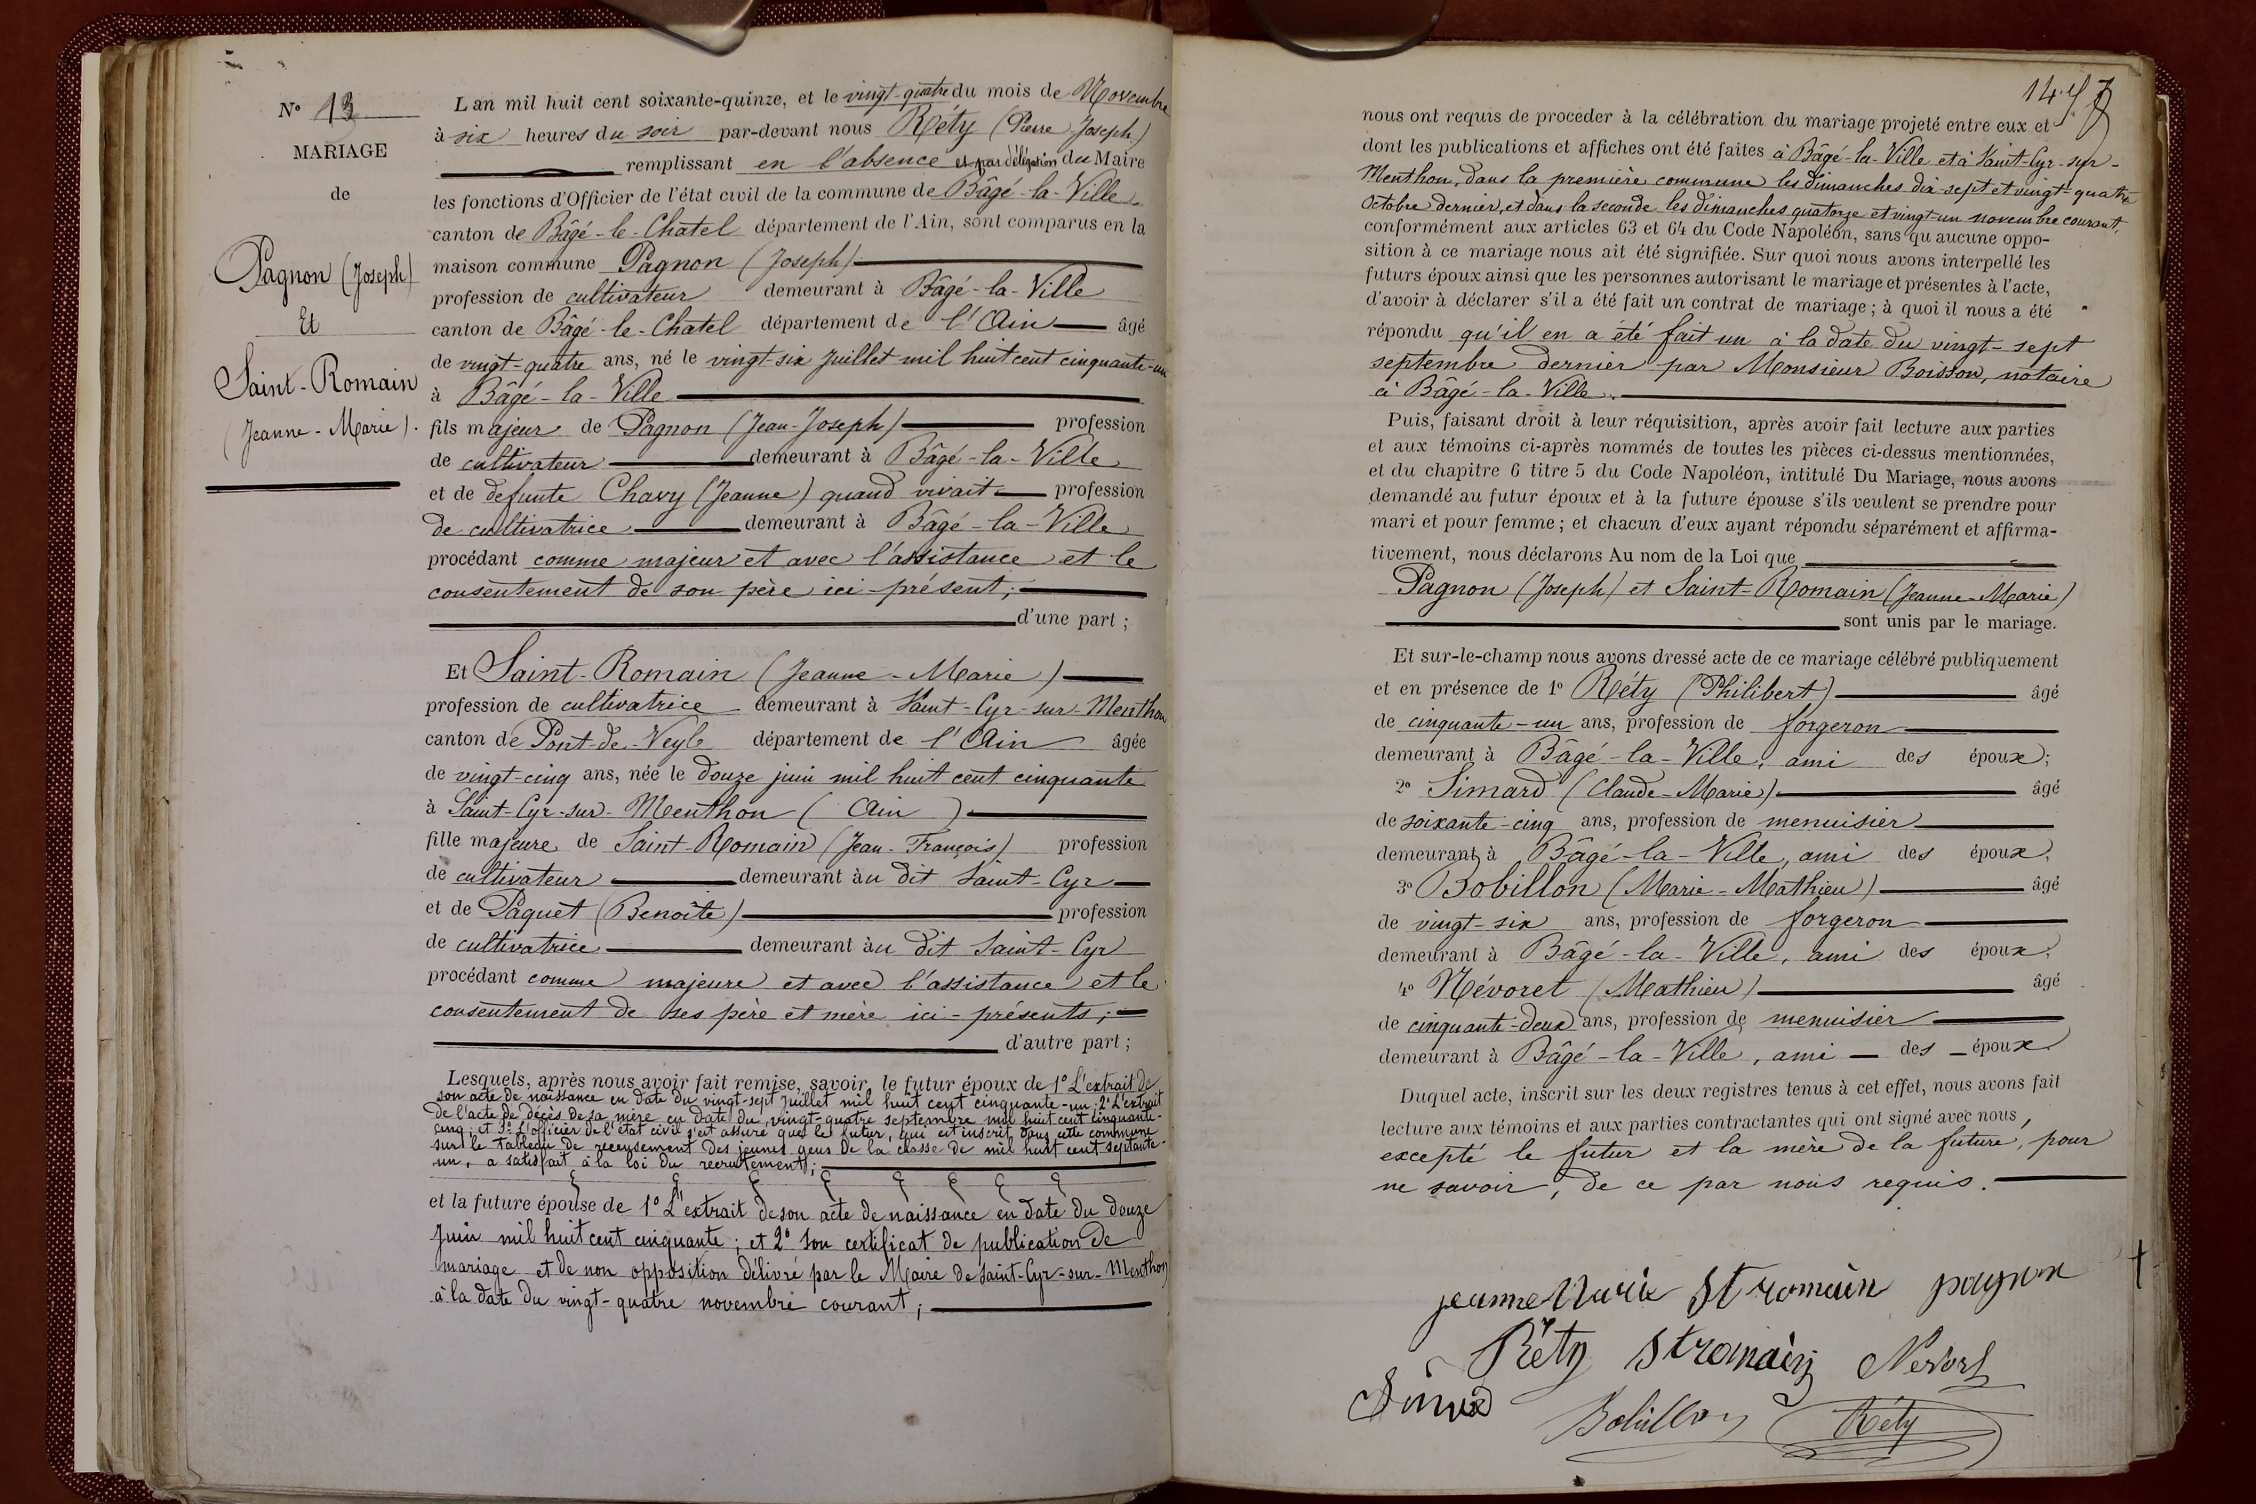 N° 13
MARIAGE
de
Pagnon (Joseph)
Et
Saint-Romain
(Jeanne-Marie).
L'an mil huit cent soixante-quinze, et le vingt-quatre du mois de Novembre
à six heures du soir par-devant nous Réty (Pierre Joseph)
remplissant en l'absence et par délégation du Maire
les fonctions d'Officier de l'état civil de la commune de Bâgé-la-Ville
canton de Bâgé-le-Chatel département de l'Ain, sont comparus en la
maison commune Pagnon (Joseph)
profession de cultivateur demeurant à Bâgé-la-Ville
canton de Bâgé-le-Chatel département de l'Ain âgé
de vingt-quatre ans, né le vingt-six juillet mil huit cent cinquante-un
à Bâgé-la-Ville
fils majeur de Pagnon (Jean-Joseph) profession
de cultivateur demeurant à Bâgé-la-Ville
et de defunte Chavy (Jeanne) quand vivait profession
de cultivatrice demeurant à Bâgé-la-Ville
procédant comme majeur et avec l'assistance et le
consentement de son père ici-présent;
d'une part;
Et Saint-Romain (Jeanne-Marie)
profession de cultivatrice demeurant à Saint-Cyr-sur-Menthon
canton de Pont-de-Veyle département de l'Ain âgée
de vingt-cinq ans, née le douze juin mil huit cent cinquante
à Saint-Cyr-sur-Menthon (Ain)
fille majeure de Saint-Romain (Jean-François) profession
de cultivateur demeurant àu dit Saint-Cyr
et de Paquet (Benoîte) profession
de cultivatrice demeurant àu dit Saint-Cyr
procédant comme majeure et avec l'assistance et le
consentement de ses père et mère ici-présents;
d'autre part;
Lesquels, après nous avoir fait remise, savoir, le futur époux de 1° L'extrait de
son acte de naissance en date du vingt-sept juillet mil huit cent cinquante-un; 2° L'extrait
de l'acte de décès de sa mère en date du vingt-quatre septembre mil huit cent cinquante-
cinq; et 3° L'officier de l'état civil s'est assuré que le futur, qui est inscrit dans cette commune
sur le tableau de recensement des jeunes gens de la classe de mil huit cent septante-
un, a satisfait à la loi du recrutement;
et la future épouse de 1° L'extrait de son acte de naissance en date du douze
juin mil huit cent cinquante; et 2° son certificat de publication de
mariage et de non opposition délivré par le Maire de Saint-Cyr-sur-Menthon
à la date du vingt-quatre novembre courant;
147
nous ont requis de procéder à la célébration du mariage projeté entre eux et
dont les publications et affiches ont été faites à Bâgé-la-Ville et à Saint-Cyr-sur-
Menthon, dans la première commune les dimanches dix-sept et vingt-quatre
Octobre dernier, et dans la seconde les dimanches quatorze et vingt-un novembre courant,
conformément aux articles 63 et 64 du Code Napoléon, sans qu'aucune oppo-
sition à ce mariage nous ait été signifiée. Sur quoi nous avons interpellé les
futurs époux ainsi que les personnes autorisant le mariage et présentes à l'acte,
d'avoir à déclarer s'il a été fait un contrat de mariage; à quoi il nous a été
répondu qu'il en a été fait un à la date du vingt-sept
septembre dernier par Monsieur Boisson, notaire
à Bâgé-la-Ville.
Puis, faisant droit à leur réquisition, après avoir fait lecture aux parties
et aux témoins ci-après nommés de toutes les pièces ci-dessus mentionnées,
et du chapitre 6 titre 5 du Code Napoléon, intitulé Du Mariage, nous avons
demandé au futur époux et à la future épouse s'ils veulent se prendre pour
mari et pour femme; et chacun d'eux ayant répondu séparément et affirma-
tivement, nous déclarons Au nom de la Loi que
Pagnon (Joseph) et Saint-Romain (Jeanne-Marie)
sont unis par le mariage.
Et sur-le-champ nous avons dressé acte de ce mariage célébré publiquement
et en présence de 1° Réty (Philibert) âgé
de cinquante-un ans, profession de forgeron
demeurant à Bâgé-la-Ville, ami des époux;
2° Simard (Claude-Marie) âgé
de soixante-cinq ans, profession de menuisier
demeurant à Bâgé-la-Ville, ami des époux,
3° Bobillon (Marie-Mathieu) âgé
de vingt-six ans, profession de forgeron
demeurant à Bâgé-la-Ville, ami des époux,
4° Névoret (Mathieu) âgé
de cinquante-deux ans, profession de menuisier
demeurant à Bâgé-la-Ville, ami des époux
Duquel acte, inscrit sur les deux registres tenus à cet effet, nous avons fait
lecture aux témoins et aux parties contractantes qui ont signé avec nous,
excepté le futur et la mère de la future, pour
ne savoir, de ce par nous requis.
jeanne Marie St romain pagnon
Réty St romain Nevort
Simard Bobillon Réty